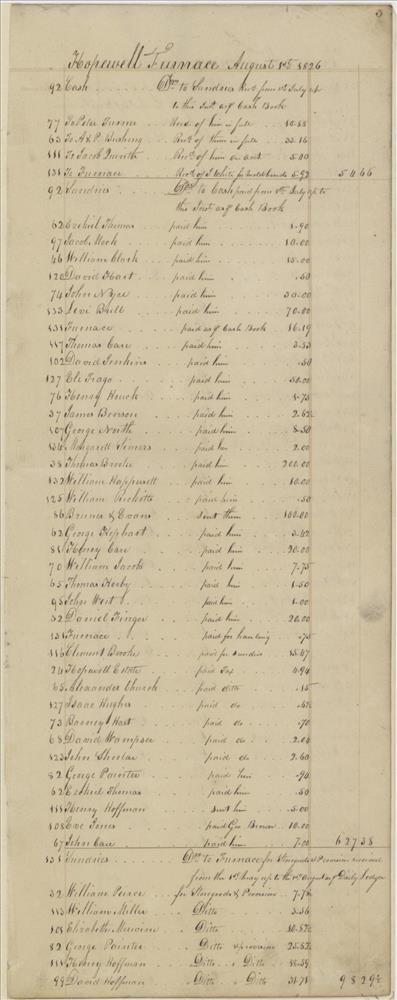 3
Hopewell Furnace August 1st 1826
92 Cash Drs to Sundries Recd from 1st July up
to this Inst as pr Cash Book
77 To Peter Turner Recd of him in full
63 To A & P. Bushing Recd of them in full 32.16
111 To Jacob Recd of him on acct 5.00
131 To Furnace Recd of J White for 5.92 54 66
92 Sundries Drs to Cash paid from 1st July up to
this Inst as pr Cash Book
62 Ezekiel Thomas paid him 1.90
97 Jacob Hook paid him 10.00
46 William Clark paid him 15.00
120 David Hart paid him .50
74 John N Dye paid him 30.00
133 Levi Bull paid him 70.00
131 Furnace paid as pr Cash Book 16.19
117 Thomas Care paid him 3.33
102 David Jenkins paid him .50
127 Eli Trago paid him 50.00
76 Henry Houck paid him 1.75
37 James Benson paid him 2.62½
107 George North paid him 8.50
134 Margarett Simers paid her 2.00
38 Thomas Brooke paid him 200.00
132 William Hoppusett paid him 10.00
125 William Ricketts paid him .50
86 Bruner & Evans sent them 100.00
62 George Kephart paid him 3.42
81 Henry Care paid him 20.00
70 William Jacobs paid him 7.75
65 Thomas Kerby paid him 1.50
95 John West paid him 1.00
32 Daniel Finger paid him 26.00
131 Furnace paid for hauling .75
116 Clement Brooke paid for Sundries 15.47
24 Hopewell Estate paid Tax 4.94
65 Alexander Church paid ditto .15
127 Isaac Hughes paid do
73 Barney Hart paid do .70
68 David Wampsee paid do 2.04
123 John Sheelar paid do 2.60
82 George Painter paid him .90
62 Ezekiel Thomas paid him .50
111 Henry Hoffman sent him 5.00
108 Eve Jones paid Geo Benson 10.00
67 John Care paid him 7.00 627 38
131 Sundries Drs to Furnace for Storegoods & Provision received
from the 1st May up to the 1st August as pr Daily Ledger
32 William Peirce for Storegoods & Provisions 7.78
113 William Miller Ditto 3.36
108 Elizabeth Mervine Ditto
82 George Painter Ditto & provisions
111 Henry Hoffman Ditto Ditto
99 David Hoffman Ditto Ditto 31.71 98 29½